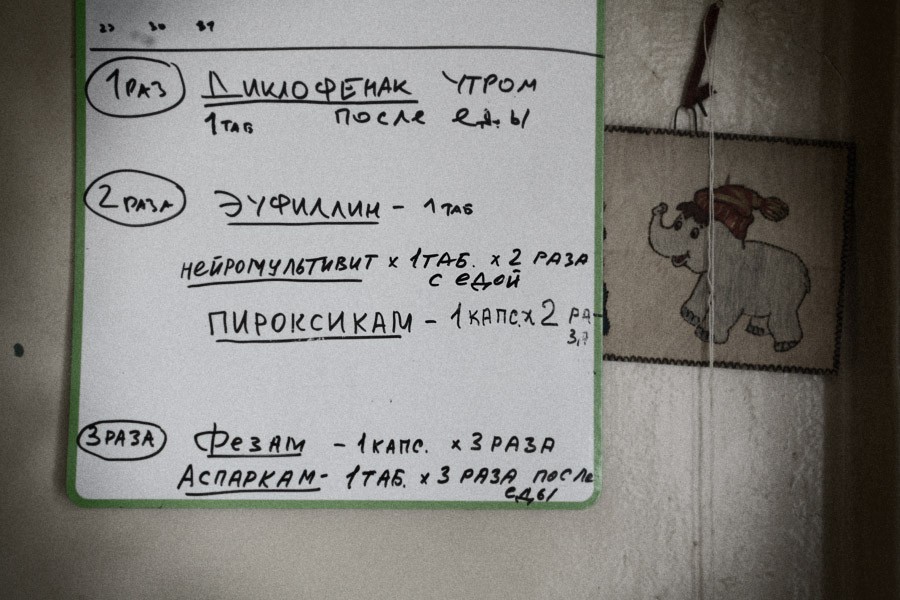 23 30 89
1 РАЗ ДИКЛОФЕНАК УТРОМ
1 ТАБ ПОСЛЕ ЕДЫ
2 РАЗА ЭУФИЛЛИН - 1 ТАБ
НЕЙРОМУЛЬТИВИТ х 1 ТАБ. х 2 РАЗА
С ЕДОЙ
ПИРОКСИКАМ - 1 КАПС. х 2 РА-
ЗА
3 РАЗА ФЕЗАМ - 1 КАПС. х 3 РАЗА
АСПАРКАМ - 1 ТАБ. х 3 РАЗА ПОСЛЕ
ЕДЫ